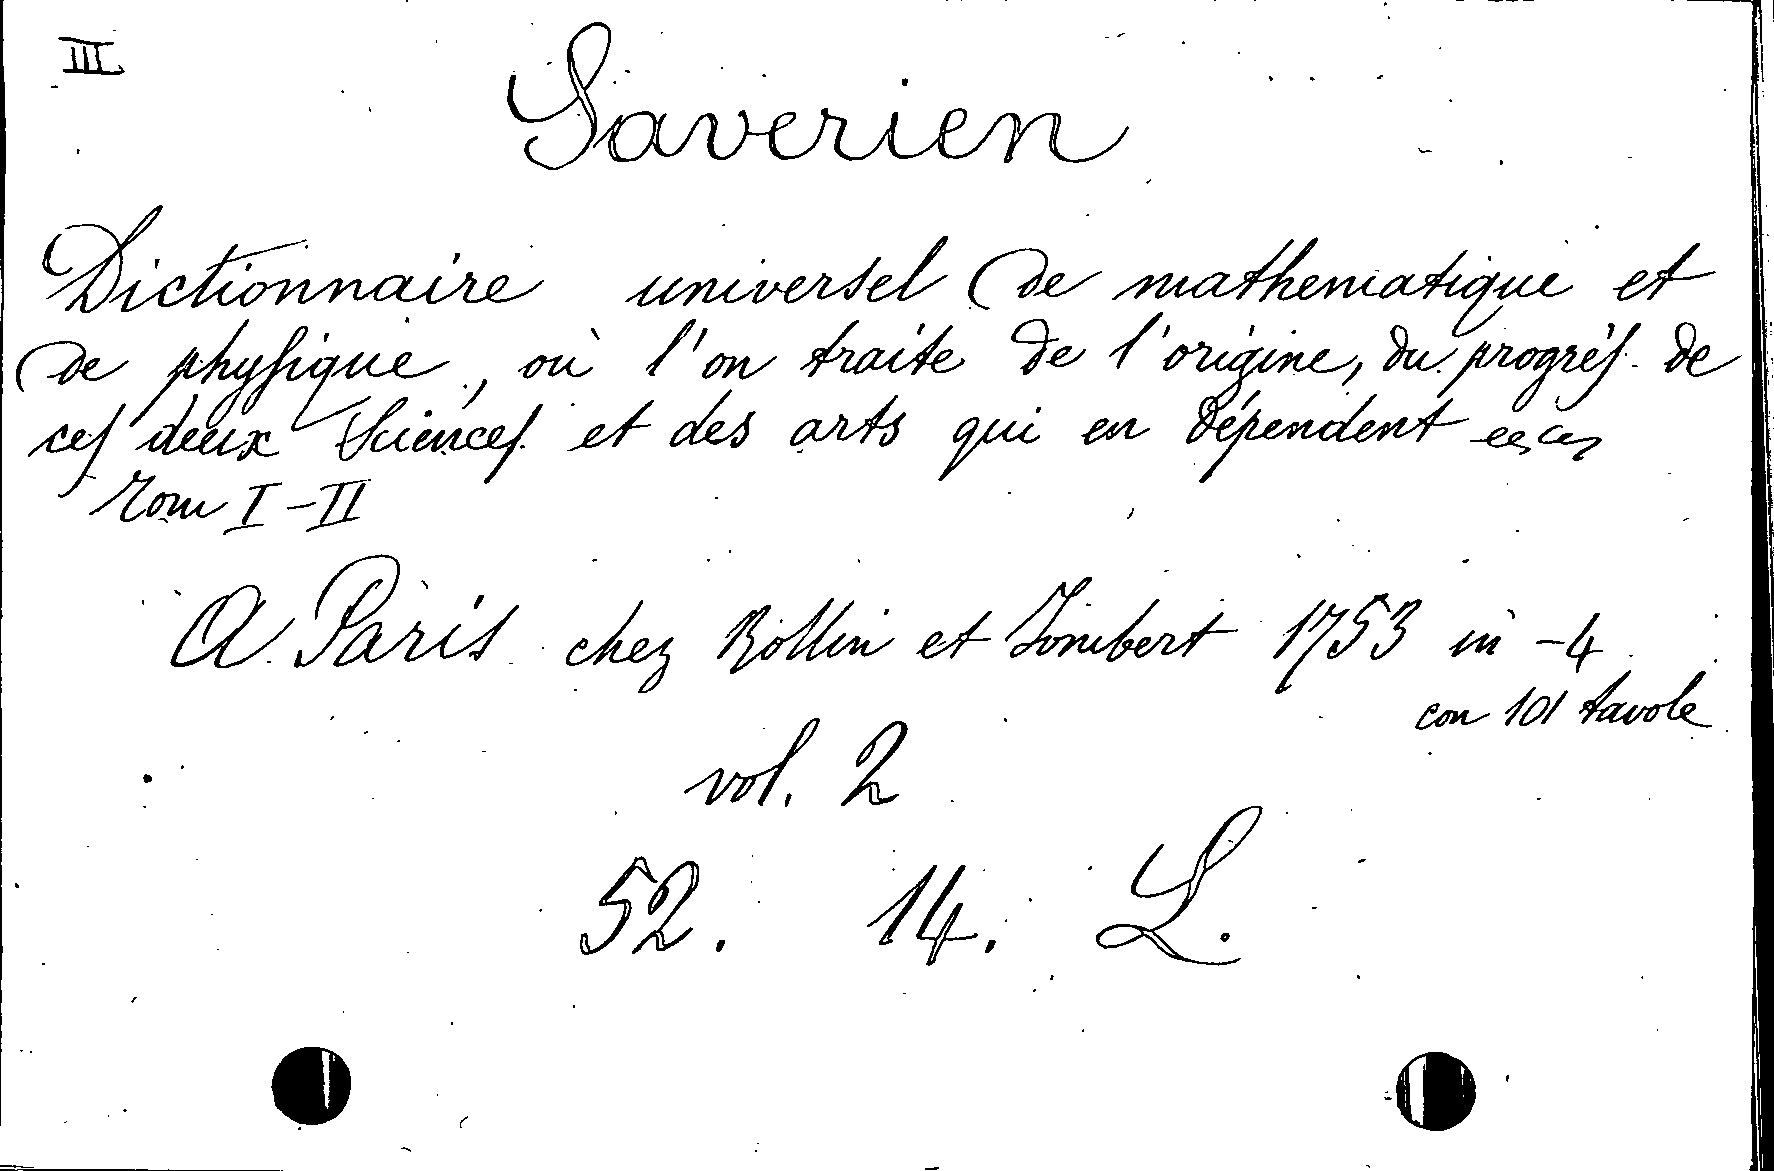 III
Saverien
Dictionnaire universel de mathematique et
de physique, où l'on traite de l'origine, du progrés de
ces deux Sciences et des arts qui en dépendent
Tom I - II
A Paris chez Rollin et Jombert 1753 in -4
con 101 tavole
vol. 2
52. 14. L.